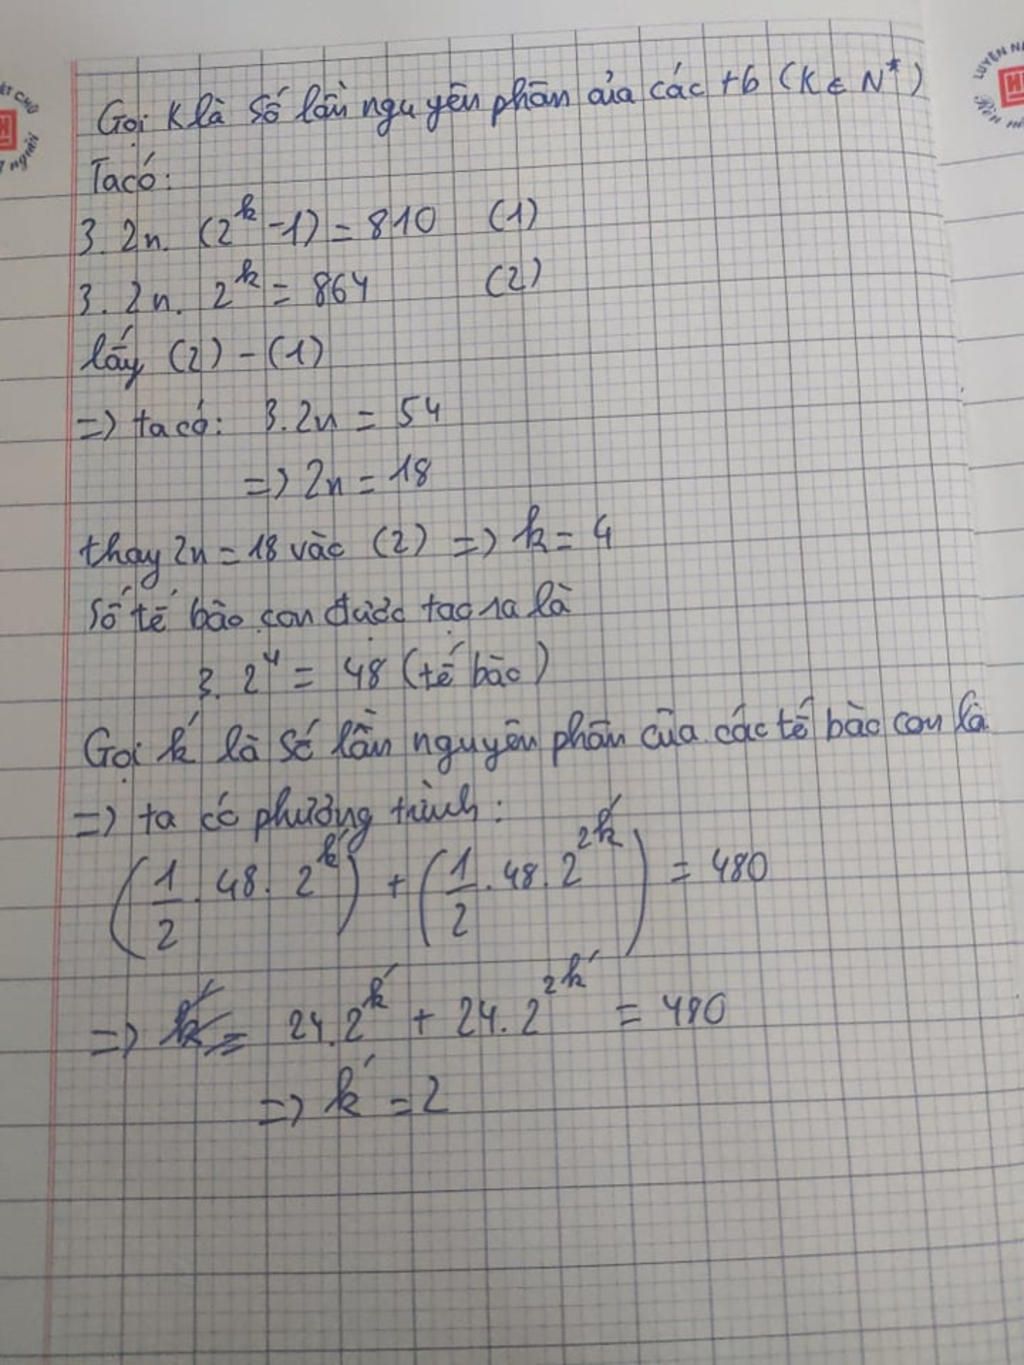 Gọi K là số lần nguyên phân của các tb (K ∈ N*)
Ta có:
3. 2n. (2^k - 1) = 810 (1)
3. 2n. 2^k = 864 (2)
lấy (2) - (1)
=> ta có: 3. 2n = 54
=> 2n = 18
thay 2n = 18 vào (2) => k = 4
Số tế bào con được tạo ra là
3. 2^4 = 48 (tế bào)
Gọi k' là số lần nguyên phân của các tế bào con là
=> ta có phương trình:
(1/2 . 48. 2^k') + (1/2 . 48. 2^2k') = 480
=> 24. 2^k' + 24. 2^2k' = 480
=> k' = 2
LUYỆN